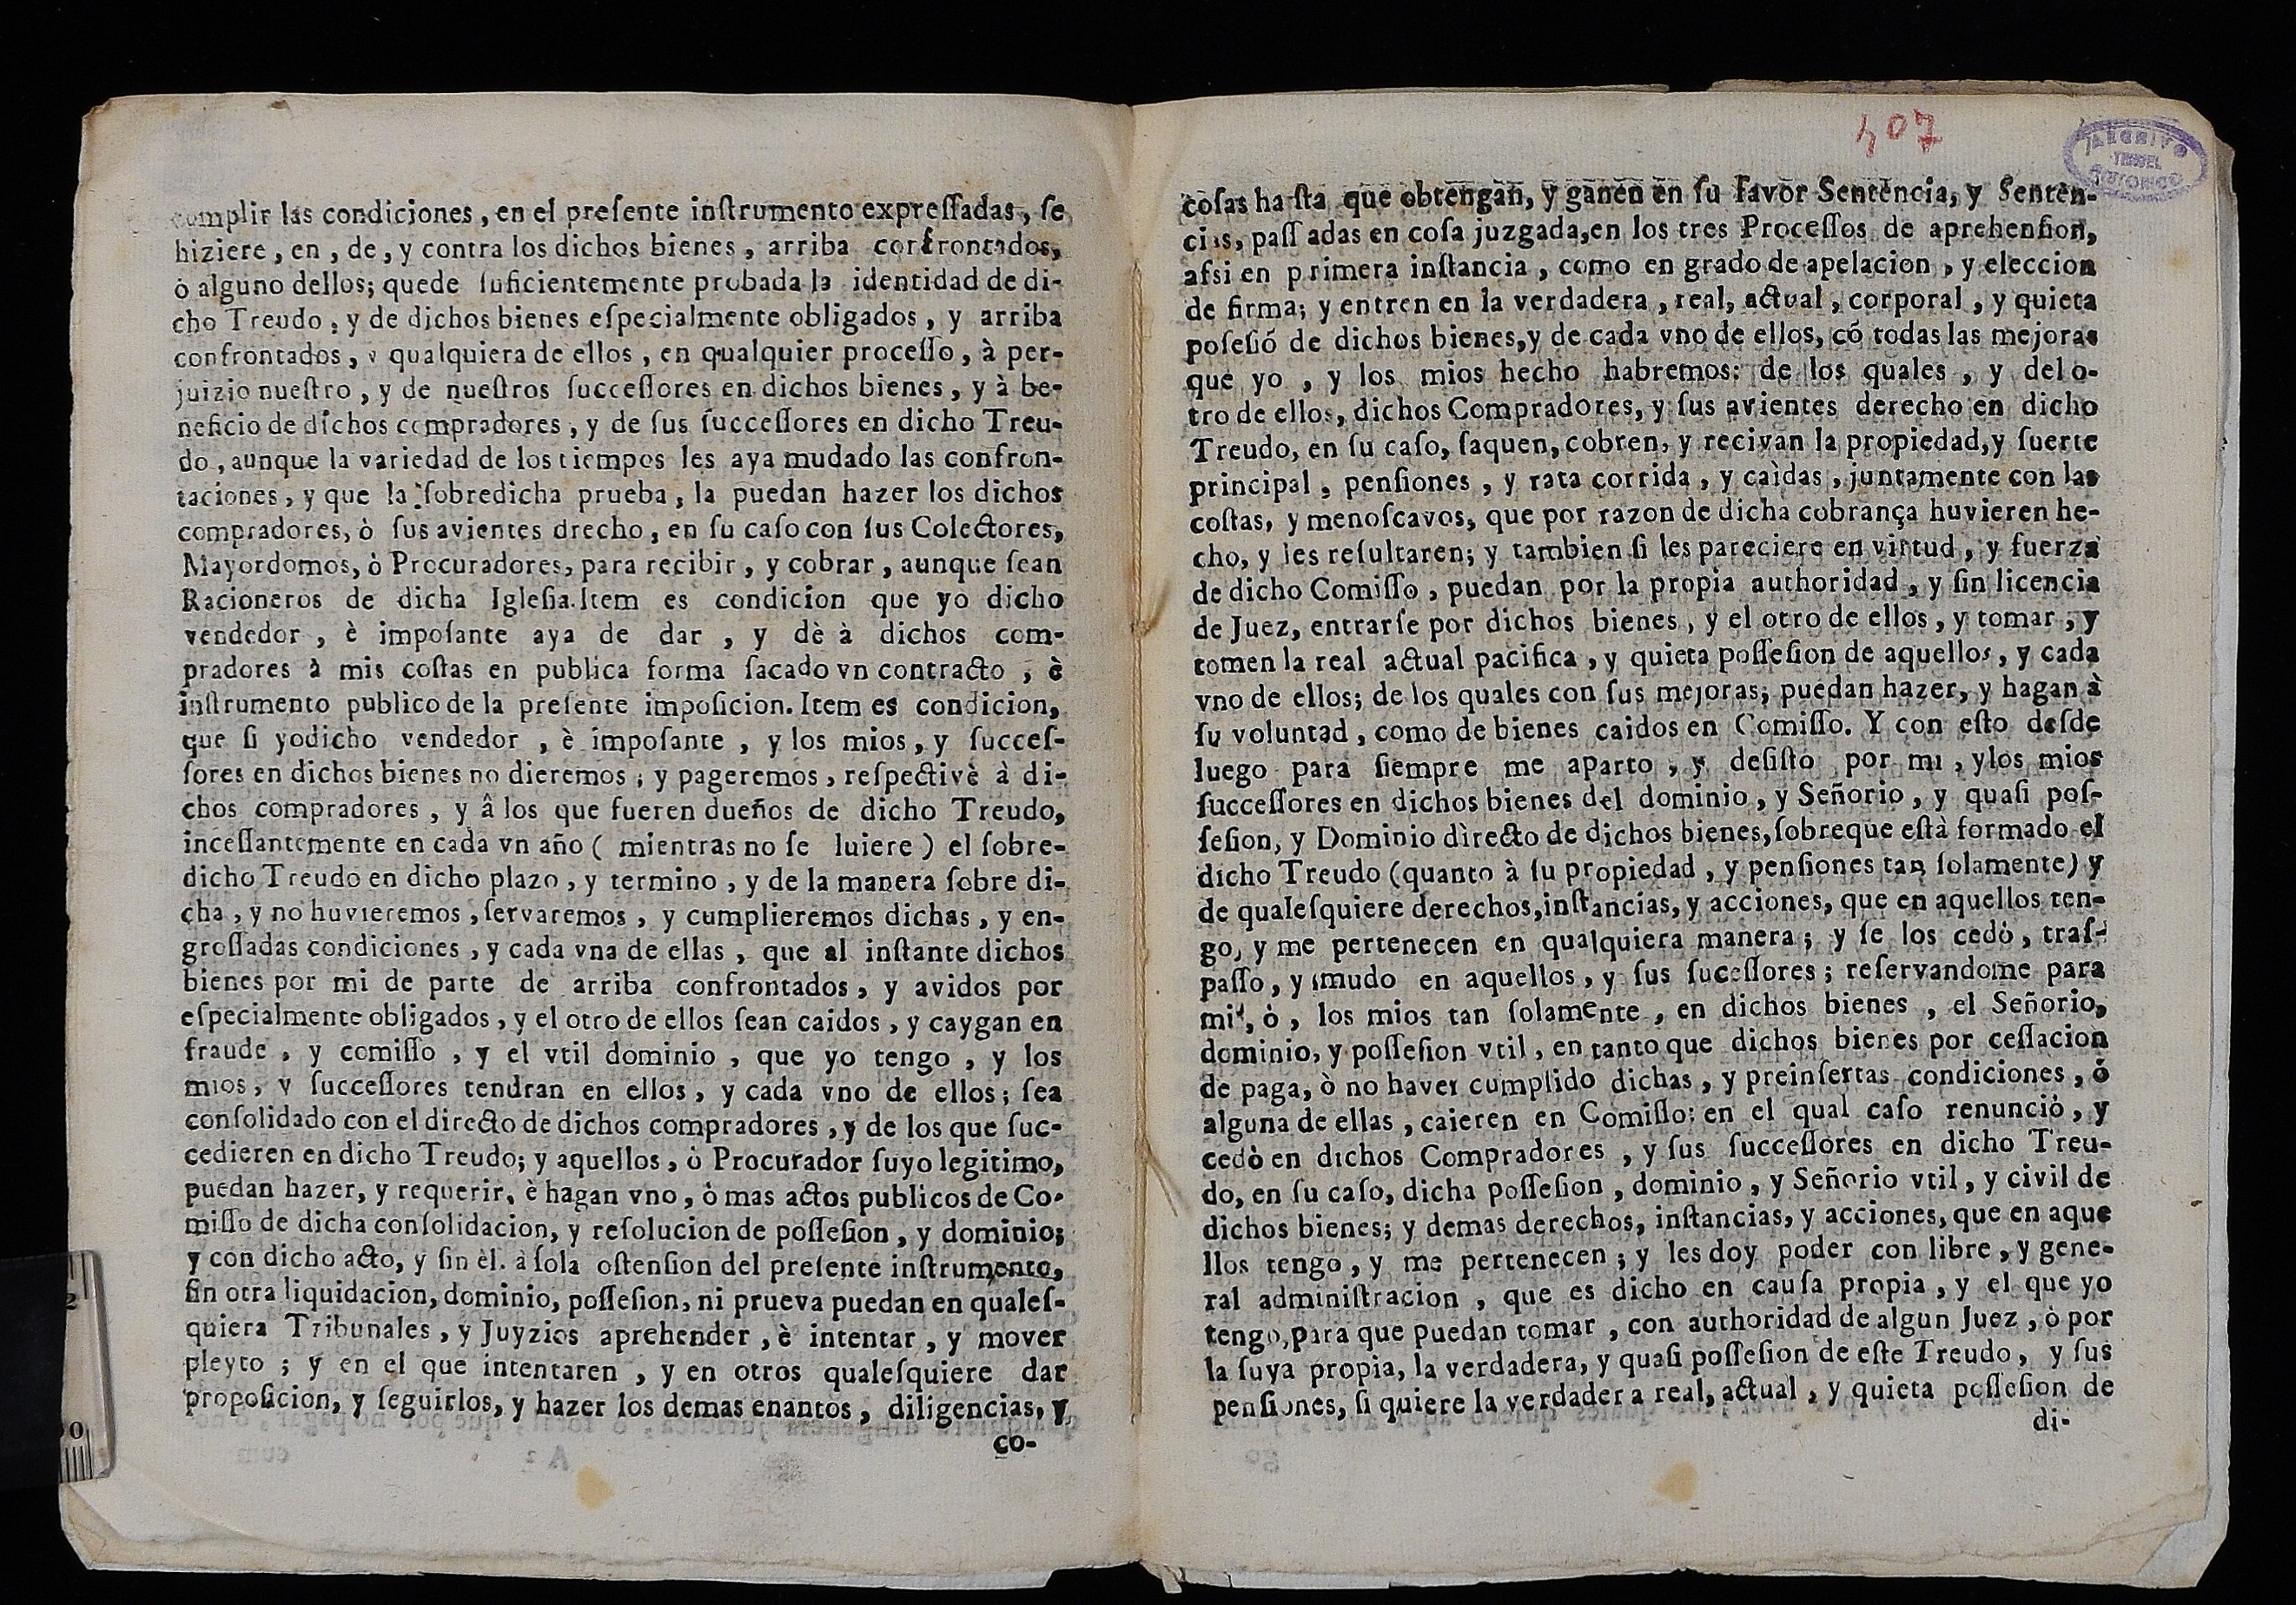 cumplir las condiciones, en el preſente inſtrumento expreſſadas, ſe
hiziere, en, de, y contra los dichos bienes, arriba confrontados,
ò alguno dellos; quede ſuficientemente probada la identidad de di-
cho Treudo, y de dichos bienes eſpecialmente obligados, y arriba
confrontados, y qualquiera de ellos, en qualquier proceſſo, à per-
juizio nueſtro, y de nueſtros ſucceſſores en dichos bienes, y à be-
neficio de dichos compradores, y de ſus ſucceſſores en dicho Treu-
do, aunque la variedad de los tiempos les aya mudado las confron-
taciones, y que la ſobredicha prueba, la puedan hazer los dichos
compradores, ò ſus avientes drecho, en ſu caſo con ſus Colectores,
Mayordomos, ò Procuradores, para recibir, y cobrar, aunque ſean
Racioneros de dicha Igleſia. Item es condicion que yo dicho
vendedor, è impoſante aya de dar, y dè à dichos com-
pradores à mis coſtas en publica forma ſacado vn contracto, è
inſtrumento publico de la preſente impoſicion. Item es condicion,
que ſi yodicho vendedor, è impoſante, y los mios, y ſucceſ-
ſores en dichos bienes no dieremos, y pageremos, reſpectivè à di-
chos compradores, y â los que fueren dueños de dicho Treudo,
inceſſantemente en cada vn año ( mientras no ſe luiere ) el ſobre-
dicho Treudo en dicho plazo, y termino, y de la manera ſobre di-
cha, y no huvieremos, ſervaremos, y cumplieremos dichas, y en-
groſſadas condiciones, y cada vna de ellas, que al inſtante dichos
bienes por mi de parte de arriba confrontados, y avidos por
eſpecialmente obligados, y el otro de ellos ſean caidos, y caygan en
fraude, y comiſſo, y el vtil dominio, que yo tengo, y los
mios, y ſucceſſores tendran en ellos, y cada vno de ellos; ſea
conſolidado con el directo de dichos compradores, y de los que ſuc-
cedieren en dicho Treudo; y aquellos, ò Procurador ſuyo legitimo,
puedan hazer, y requerir, è hagan vno, ò mas actos publicos de Co-
miſſo de dicha conſolidacion, y reſolucion de poſſeſion, y dominio;
y con dicho acto, y ſin èl. à ſola oſtenſion del preſente inſtrumento,
ſin otra liquidacion, dominio, poſſeſion, ni prueva puedan en qualeſ-
quiera Tribunales, y Juyzios aprehender, è intentar, y mover
pleyto; y en el que intentaren, y en otros qualeſquiere dar
propoſicion, y ſeguirlos, y hazer los demas enantos, diligencias, y
co-
407
ARCHIVO
TERUEL
coſas haſta que obtengan, y ganen en ſu favor Sentencia, y Senten-
cias, paſſadas en coſa juzgada, en los tres Proceſſos de aprehenſion,
aſsi en primera inſtancia, como en grado de apelacion, y eleccion
de firma; y entren en la verdadera, real, actual, corporal, y quieta
poſeſió de dichos bienes, y de cada vno de ellos, có todas las mejoras
que yo, y los mios hecho habremos: de los quales, y del o-
tro de ellos, dichos Compradores, y ſus avientes derecho en dicho
Treudo, en ſu caſo, ſaquen, cobren, y recivan la propiedad, y ſuerte
principal, penſiones, y rata corrida, y caìdas, juntamente con las
coſtas, y menoſcavos, que por razon de dicha cobrança huvieren he-
cho, y les reſultaren; y tambien ſi les pareciere en virtud, y fuerza
de dicho Comiſſo, puedan por la propia authoridad, y ſin licencia
de Juez, entrarſe por dichos bienes, y el otro de ellos, y tomar, y
tomen la real actual pacifica, y quieta poſſeſion de aquellos, y cada
vno de ellos; de los quales con ſus mejoras; puedan hazer, y hagan à
ſu voluntad, como de bienes caidos en Comiſſo. Y con eſto desde
luego para ſiempre me aparto, y deſiſto por mi, ylos mios
ſucceſſores en dichos bienes del dominio, y Señorio, y quaſi poſ-
ſeſion, y Dominio dìrecto de dichos bienes, ſobreque eſtà formado el
dicho Treudo (quanto à ſu propiedad, y penſiones tan ſolamente) y
de qualeſquiere derechos, inſtancias, y acciones, que en aquellos ten-
go, y me pertenecen en qualquiera manera; y ſe los cedò, traſ-
paſſo, y mudo en aquellos, y ſus ſuceſſores; reſervandome para
mi, ò, los mios tan ſolamente, en dichos bienes, el Señorio,
dominio, y poſſeſion vtil, en tanto que dichos bienes por ceſſacion
de paga, ò no haver cumplido dichas, y preinſertas condiciones, ò
alguna de ellas, caieren en Comiſſo: en el qual caſo renunciò, y
cedò en dichos Compradores, y ſus ſucceſſores en dicho Treu-
do, en ſu caſo, dicha poſſeſion, dominio, y Señorio vtil, y civil de
dichos bienes; y demas derechos, inſtancias, y acciones, que en aque
llos tengo, y me pertenecen; y les doy poder con libre, y gene-
ral adminiſtracion, que es dicho en cauſa propia, y el que yo
tengo, para que puedan tomar, con authoridad de algun Juez, ò por
la ſuya propia, la verdadera, y quaſi poſſeſion de eſte Treudo, y ſus
penſiones, ſi quiere la verdadera real, actual, y quieta poſſeſion de
di-